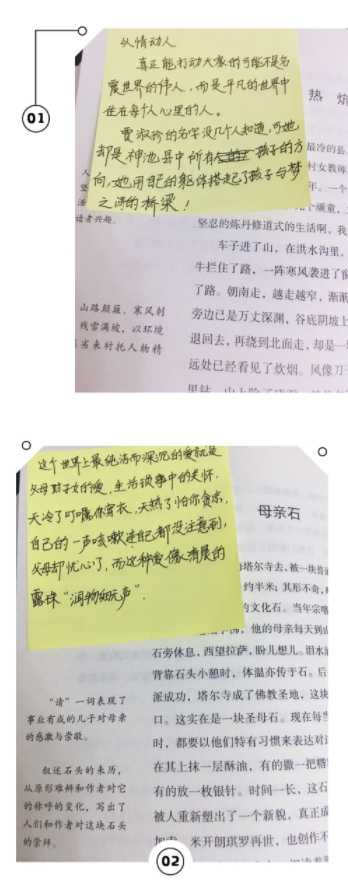 01
从情动人
真正能打动大家的可能不是名
震世界的伟人，而是平凡的世界中
住在每个人心里的人。
贾淑珍的名字没几个人知道，可她
却是神池县中所有孩子的方
向，她用自己的躯体搭起了孩子与梦
之间的桥梁！
热
最冷的县
村女教师
年。一个
个顽童，
读者兴趣。
坚忍的炼丹修道式的生活啊，我
车子进了山，在洪水沟里，
牛拦住了路，一阵寒风袭进了
了路。朝南走，越走越窄，渐渐
旁边已是万丈深渊，谷底阴坡上
退回去，再绕到北面走，却是一
远处已经看见了炊烟。风像刀子
山路颠簸，寒风刺
残雪满坡，以环境
劣来衬托人物精
这个世界上最纯洁而深沉的爱就是
父母对子女的爱，生活琐事中的关怀，
天冷了叮嘱你穿衣，天热了怕你贪凉，
自己的一声咳嗽连自己都没注意到，
父母却忧心了，而这种爱像清晨的
露珠“润物细无声”.
母亲石
塔尔寺去，被一块普
约半米；其形不奇，
的文化石。当年宗喀
他的母亲每天到山
石旁休息，西望拉萨，盼儿想儿。泪水
背靠石头小憩时，体温亦传于石。后
派成功，塔尔寺成了佛教圣地，这块
口。这实在是一块圣母石。现在每当
时，都要以他们特有习惯来表达对这
在其上抹一层酥油，有的撒一把糌
有的放一枚银针。时间一长，这石
被人重新塑出了一个新貌，真正成
米开朗琪罗再世，也创作不
“请”一词表现了
事业有成的儿子对母亲
的感激与崇敬。
叙述石头的来历，
从原形难辨和作者对它
的称呼的变化，写出了
人们和作者对这块石头
的崇拜。
02